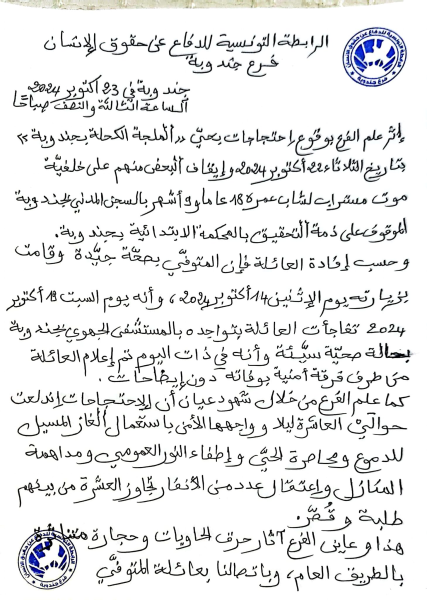 الرابطة التونسية للدفاع عن حقوق الإنسان
فرع جندوبة
جندوبة في 23 أكتوبر 2024
الساعة الثالثة والنصف صباحا
إثر علم الفرع بوقوع إحتجاجات بحيّ "الملجة الكحلة بجندوبة"
بتاريخ الثلاثاء 22 أكتوبر 2024 وإيقاف البعض منهم على خلفيّة
موت مستراب لشاب عمره 18 عاما و9 أشهر بالسجن المدني بجندوبة
الموقوف على ذمة التحقيق بالمحكمة الابتدائية بجندوبة.
وحسب إفادة العائلة فإن المتوفّي بصحّة جيّدة وقامت
بزيارته يوم الإثنين 14 أكتوبر 2024، وأنه يوم السبت 19 أكتوبر
2024 تفاجأت العائلة بتواجده بالمستشفى الجهوي بجندوبة
بحالة صحيّة سيّئة وأنه في ذات اليوم تم إعلام العائلة
من طرف فرقة أمنية بوفاته دون إيضاحات.
كما علم الفرع من خلال شهود عيان أن الإحتجاجات إندلعت
حوالي العاشرة ليلا وواجهها الأمن باستعمال الغاز المسيل
للدموع ومحاصرة الحيّ وإطفاء النور العمومي ومداهمة
المنازل وإعتقال عدد من الأنفار تجاوز العشرة من بينهم
طلبة وقصّر.
هذا وعاين الفرع آثار حرق الحاويات وحجارة
بالطريق العام، وباتصالنا بعائلة المتوفّي